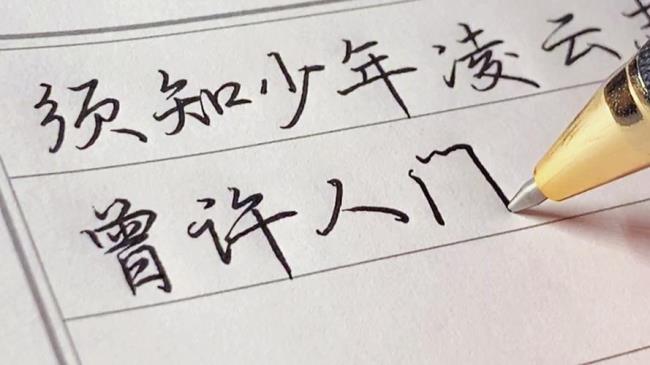 须知少年凌云
曾许人门